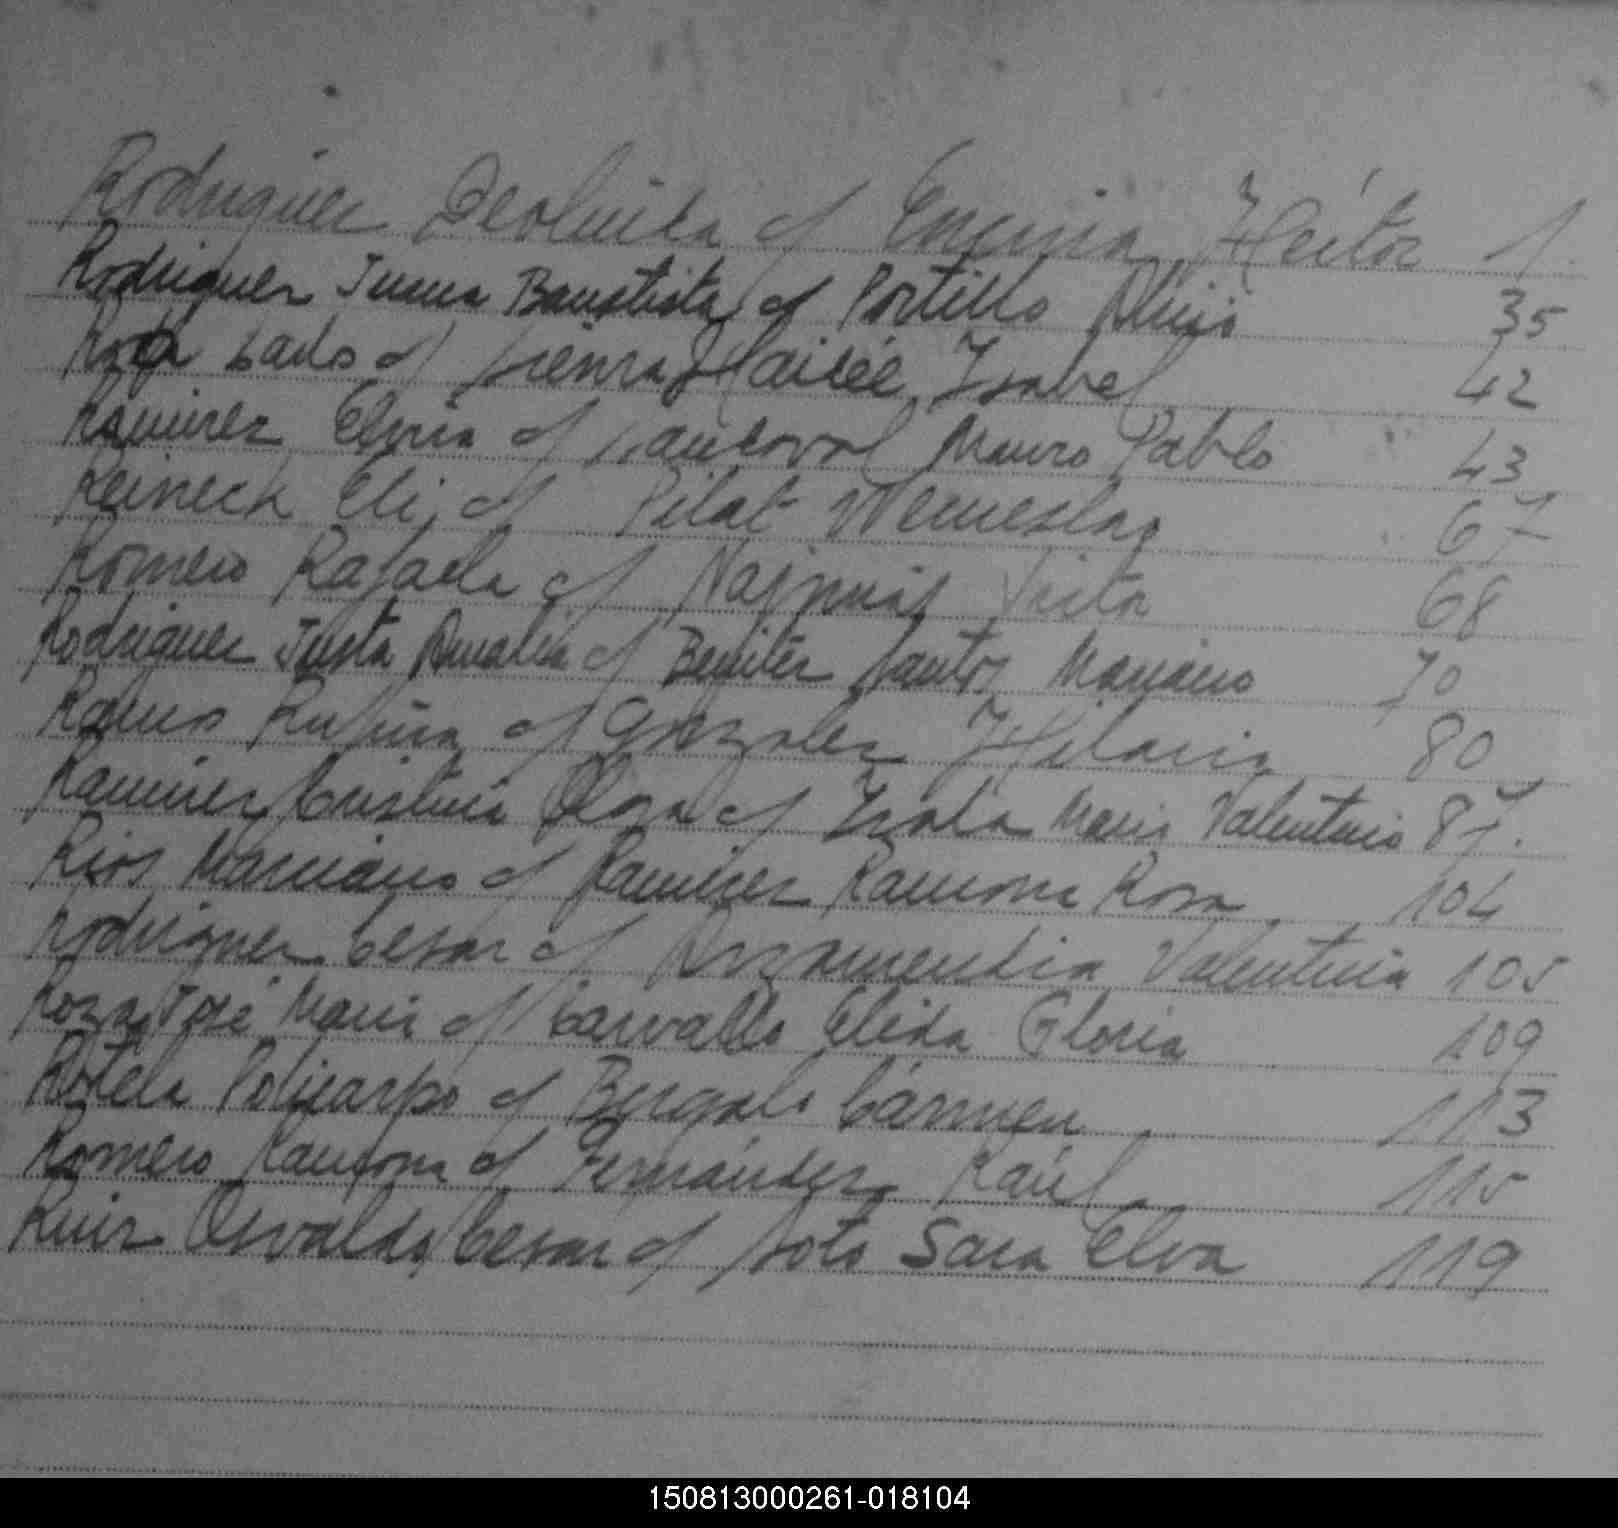 Rodriguez Deolinda c/ Encina Heitor 1
Rodriguez Juana Bautista c/ Portillo Alicio 35
Roa Carlo c/ Sienra Haidée Isabel 42
Ramirez Elvira c/ Sandoval Mauro Pablo 43
Reineck Eli, c/ Pilat Wenceslao 67
Romero Rafaela c/ Victor 68
Rodriguez Justa Amalia c/ Benitez Santos Mariano 70
Ramos Rufina c/ Gonzalez Hilario 80
Ramirez Cristina Olga c/ Zcala Mario Valentino 87.
Rios Marciano c/ Ramirez Ramona Rosa 104
Rodriguez Cesar c/ Arzamendia Valentina 105
Roza José Maria c/ Carvallo Elida Gloria 109
Rotela Policarpo c/ Burgalo Cármen 113
Romero Ramona c/ Fernández Raúl 115
Ruiz Osvaldo Cesar c/ Soto Sara Elva 119
150813000261-018104